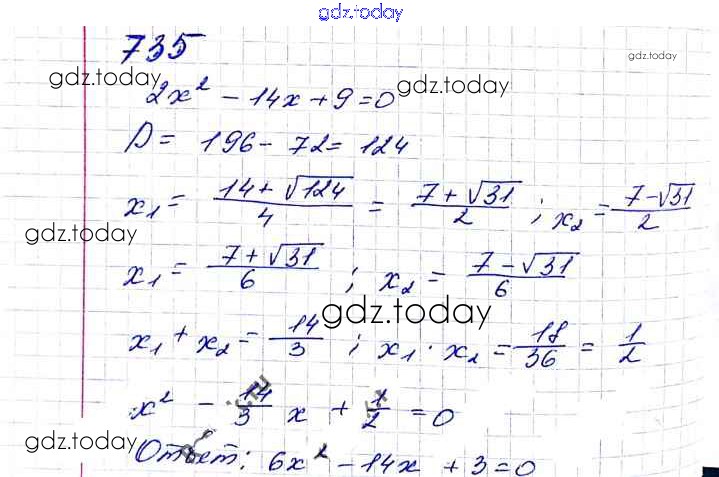 gdz.today
735
gdz.today
gdz.today
2x² - 14x + 9 = 0
gdz.today
D = 196 - 72 = 124
x₁ = (14 + √124)/4 = (7 + √31)/2 ; x₂ = (7 - √31)/2
gdz.today
x₁ = (7 + √31)/6 ; x₂ = (7 - √31)/6
gdz.today
x₁ + x₂ = 14/3 ; x₁ · x₂ = 18/36 = 1/2
x² - 14/3 x + 1/2 = 0
gdz.today
Ответ: 6x² - 14x + 3 = 0